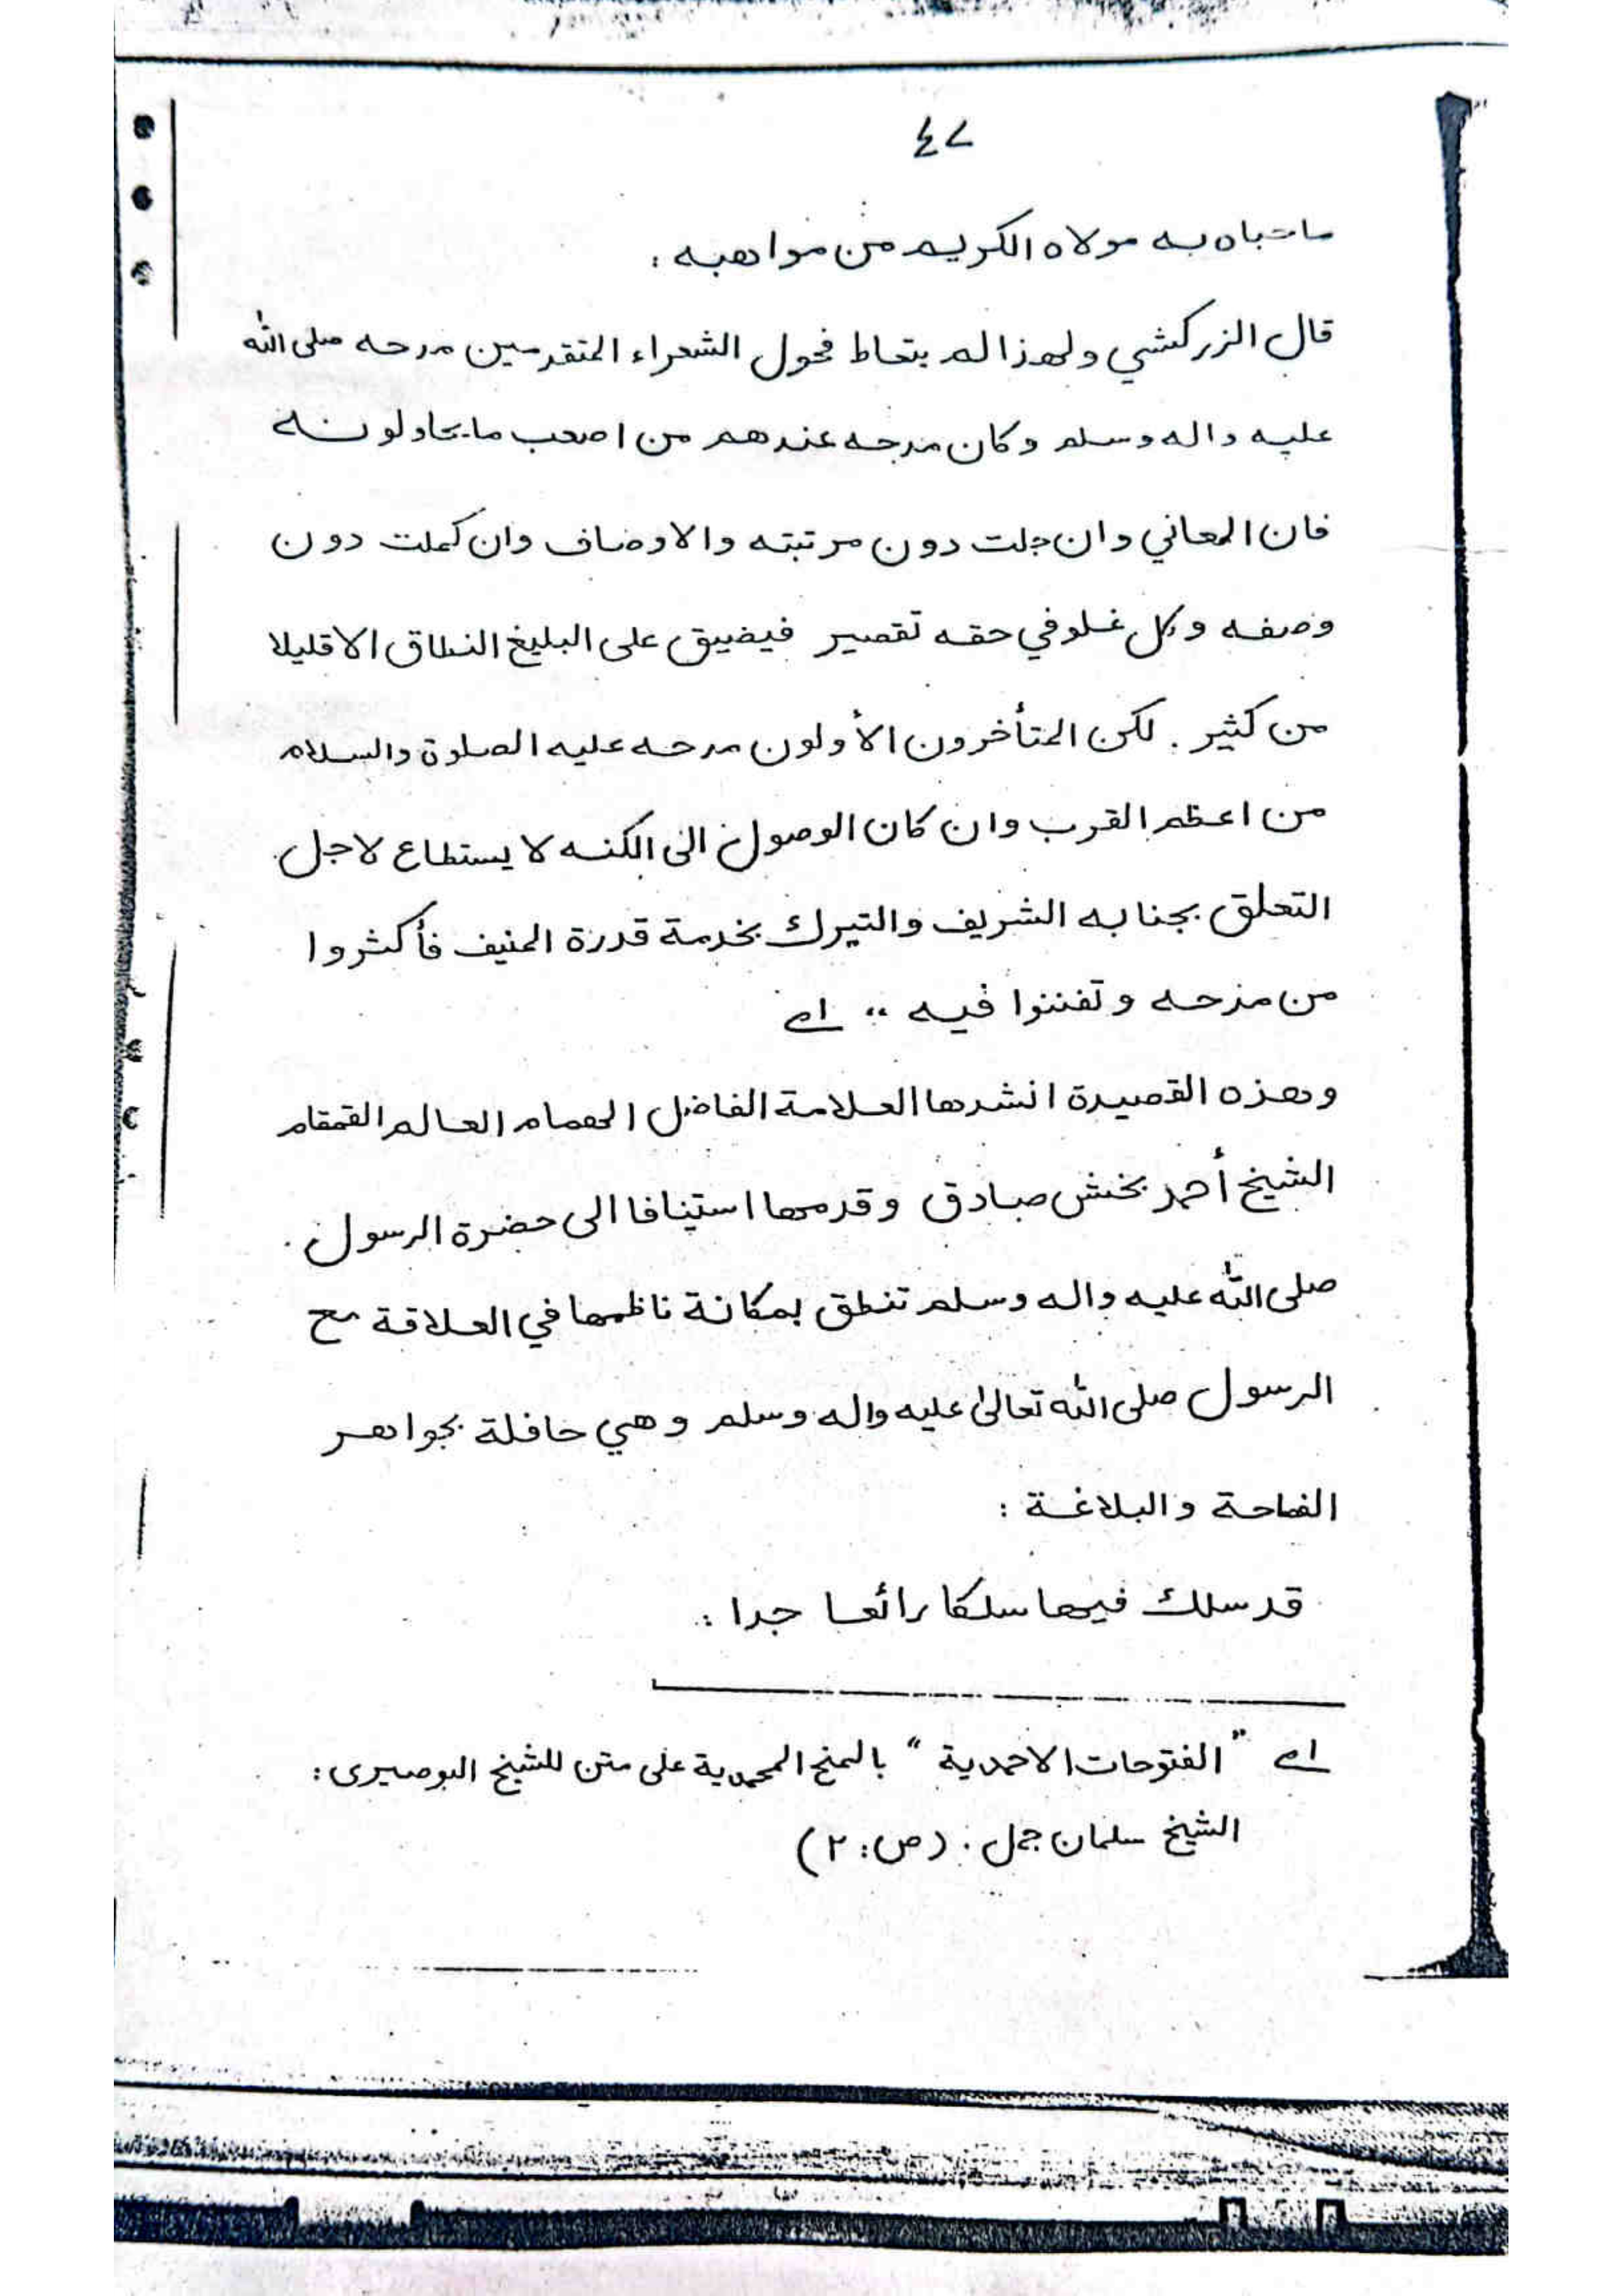 ٤٧
ماحباه به مولاه الكريم من مواهبه :
قال الزركشي ولهذا لم يتعاط فحول الشعراء المتقدمين مدحه صلى الله
عليه واله وسلم وكان مدحه عندهم من اصعب ما يحاولونه
فان المعاني وان جلت دون مرتبته والاوصاف وان كملت دون
وصفه وكل غلو في حقه تقصير فيضيق على البليغ النطاق الا قليلا
من كثير . لكن المتأخرون الأولون مدحه عليه الصلوة والسلام
من اعظم القرب وان كان الوصول الى الكنه لا يستطاع لاجل
التعلق بجنابه الشريف والتبرك بخدمة قدرة المنيف فأكثروا
من مدحه وتفننوا فيه " اھ
وهذه القصيدة انشدها العلامة الفاضل الهمام العالم القمقام
الشيخ أحمد بخش صادق وقدمها استينافا الى حضرة الرسول .
صلى الله عليه واله وسلم تنطق بمكانة ناظمها في العلاقة مع
الرسول صلى الله تعالىٰ عليه واله وسلم وهي حافلة بجواهر
الفصاحة والبلاغة :
قد سلك فيها سلكا رائعا جدا :
اھ "الفتوحات الاحمدية" بالمنح المحمدية على متن للشيخ البوصيرى :
الشيخ سلمان جمل . (ص: ٢)